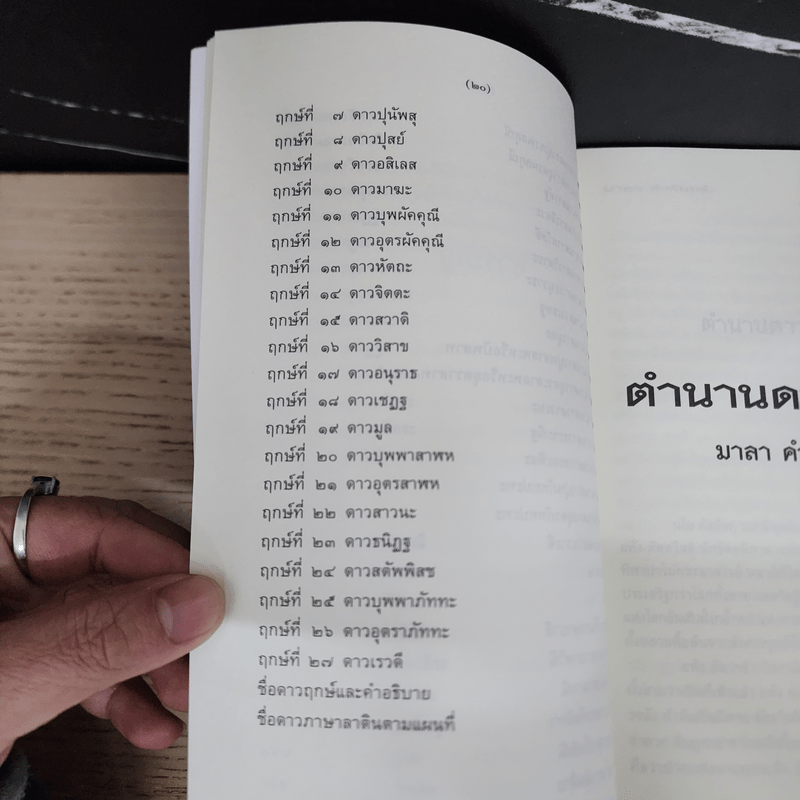 (๒๐)
ฤกษ์ที่ ๗ ดาวปุนัพสุ
ฤกษ์ที่ ๘ ดาวปุสย์
ฤกษ์ที่ ๙ ดาวอสิเลส
ฤกษ์ที่ ๑๐ ดาวมาฆะ
ฤกษ์ที่ ๑๑ ดาวบุพผัคคุณี
ฤกษ์ที่ ๑๒ ดาวอุตรผัคคุณี
ฤกษ์ที่ ๑๓ ดาวหัตถะ
ฤกษ์ที่ ๑๔ ดาวจิตตะ
ฤกษ์ที่ ๑๕ ดาวสวาติ
ฤกษ์ที่ ๑๖ ดาววิสาข
ฤกษ์ที่ ๑๗ ดาวอนุราธ
ฤกษ์ที่ ๑๘ ดาวเชฏฐ
ฤกษ์ที่ ๑๙ ดาวมูล
ฤกษ์ที่ ๒๐ ดาวบุพพาสาฬห
ฤกษ์ที่ ๒๑ ดาวอุตรสาฬห
ฤกษ์ที่ ๒๒ ดาวสาวนะ
ฤกษ์ที่ ๒๓ ดาวธนิฏฐ
ฤกษ์ที่ ๒๔ ดาวสตัพพิสช
ฤกษ์ที่ ๒๕ ดาวบุพพาภัททะ
ฤกษ์ที่ ๒๖ ดาวอุตราภัททะ
ฤกษ์ที่ ๒๗ ดาวเรวดี
ชื่อดาวฤกษ์และคำอธิบาย
ชื่อดาวภาษาลาตินตามแผนที่
ตำนานด
มาลา คำ